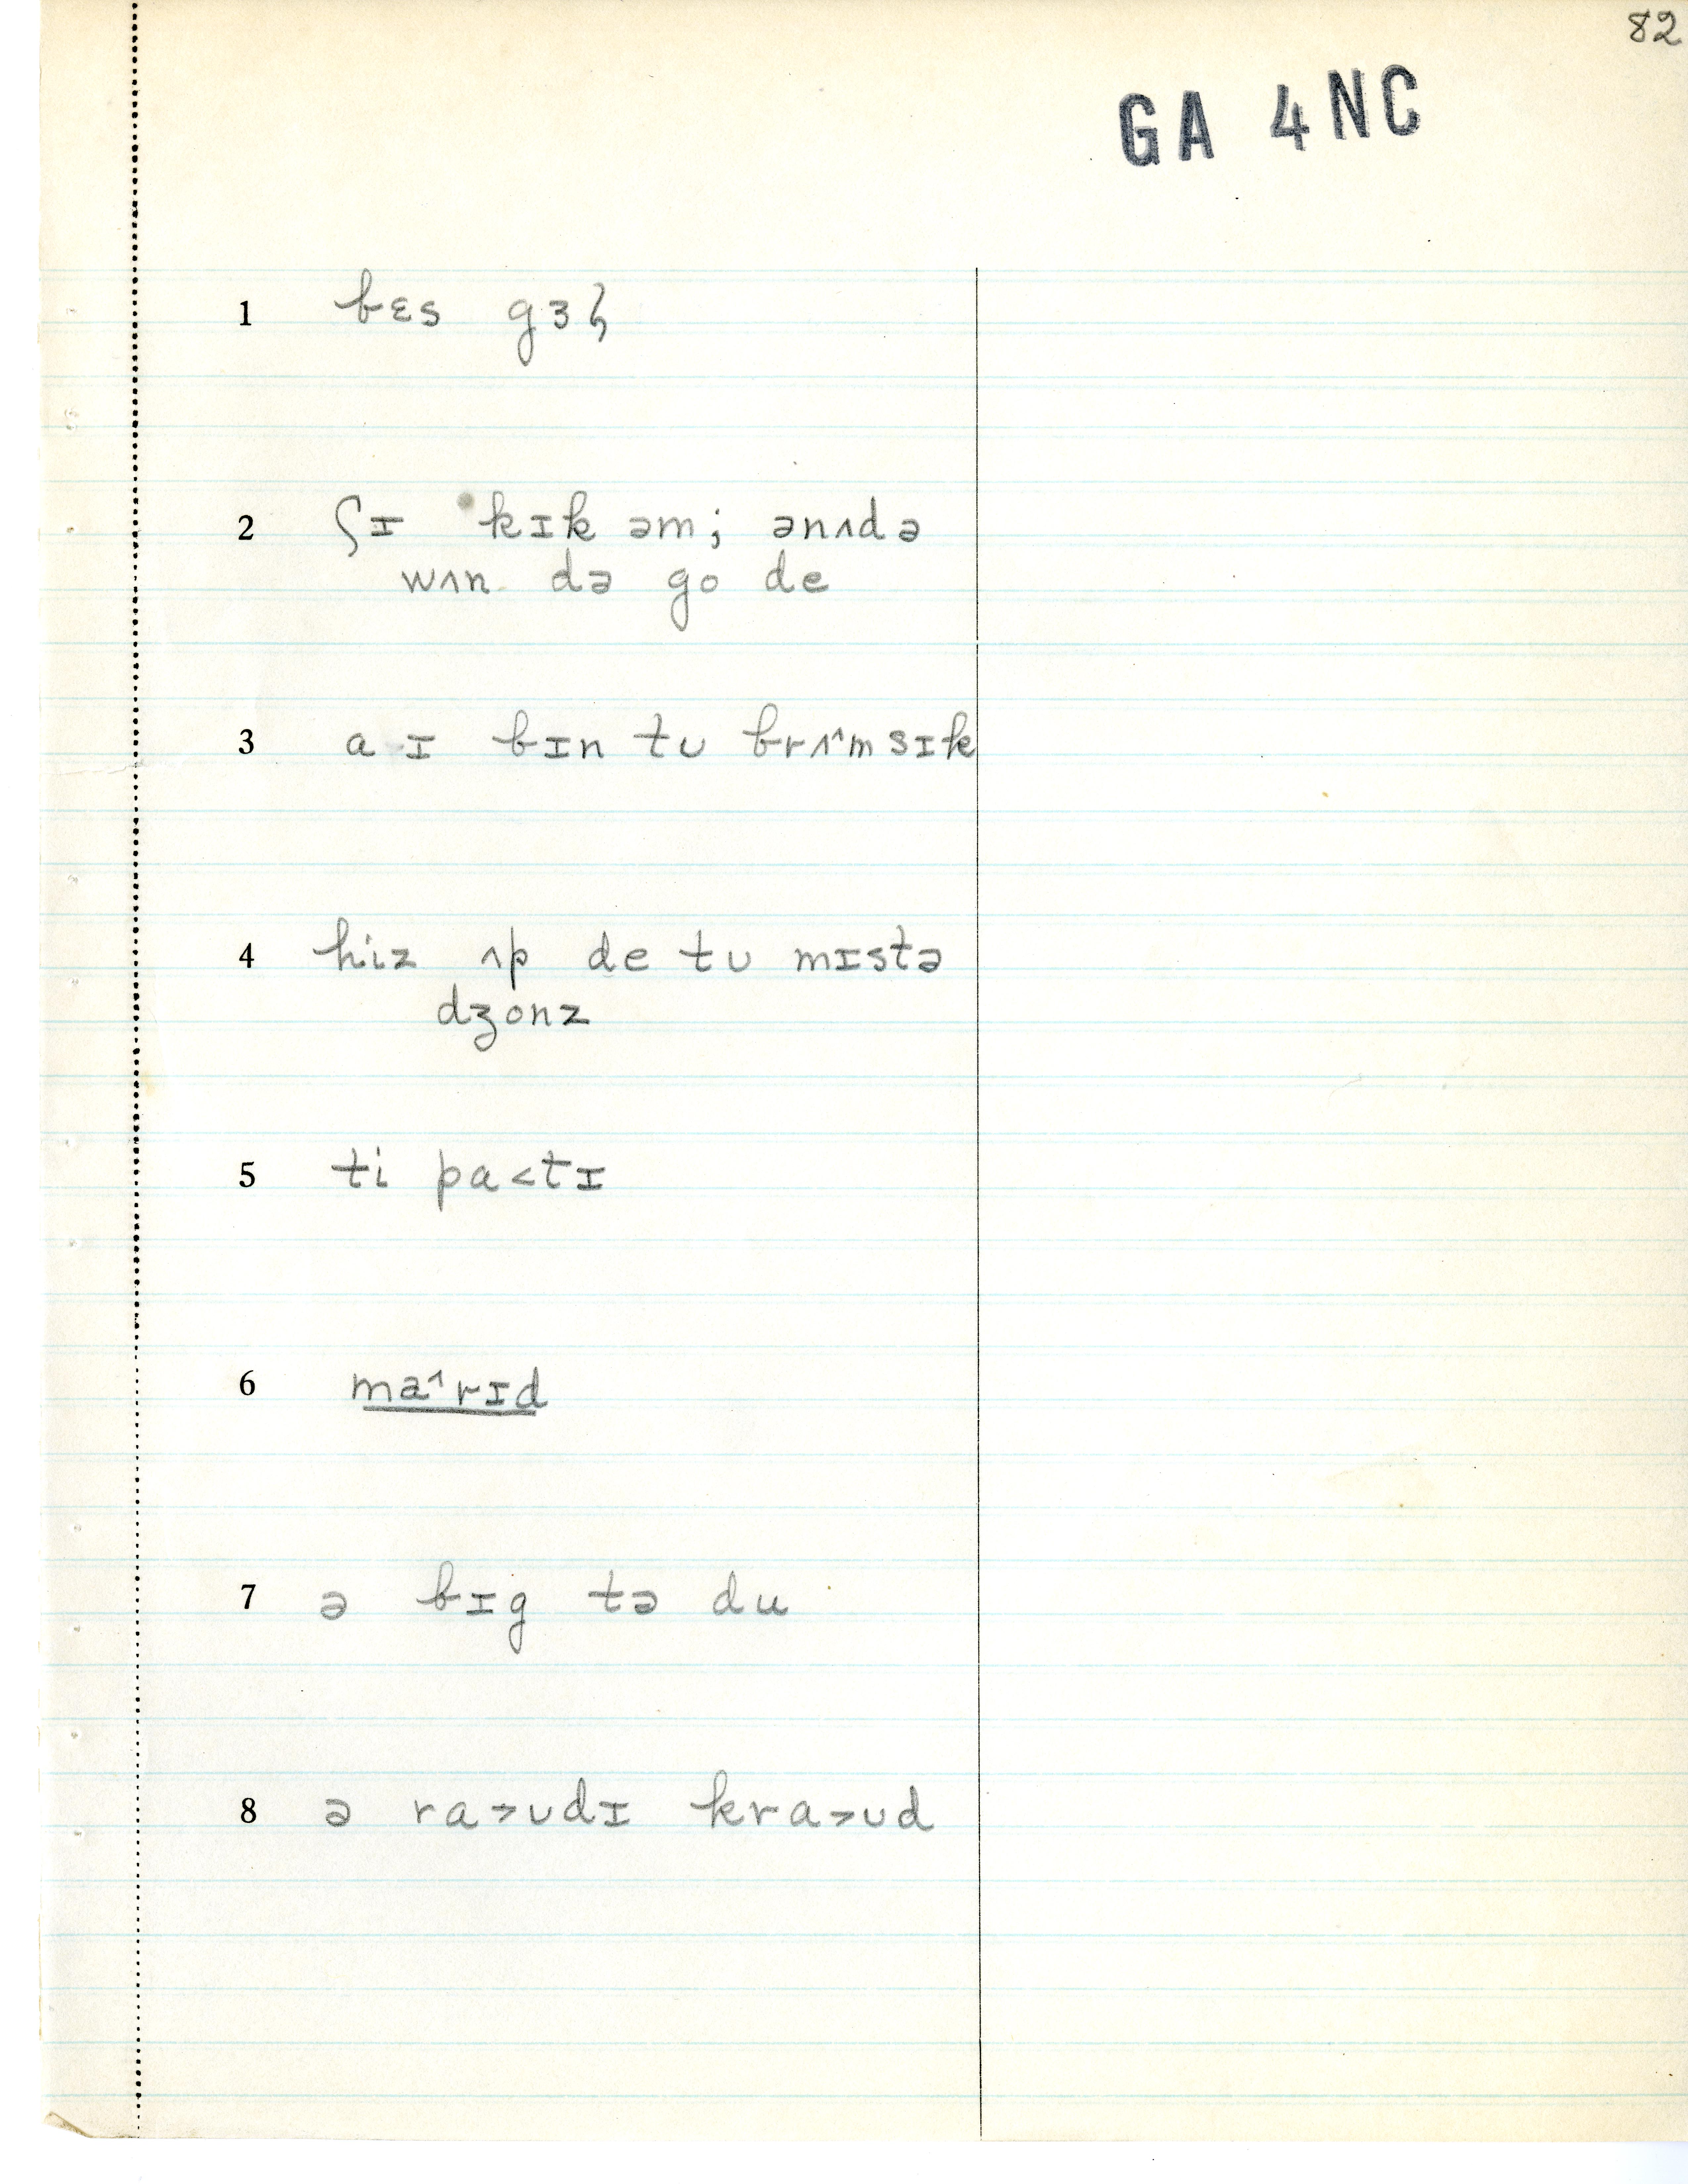 82
GA 4NC
1 bɛs gɜɮ
2 ʃɪ kɪk əm; ənʌdə
wʌn də go de
3 aɪ bɪn tʊ brʌ^msɪk
4 hiz ʌp de tʊ mɪstə
dʒonz
5 ti pa<tɪ
6 ma^rɪd
7 ə bɪg tə du
8 ə ra>ʊdɪ kra>ʊd